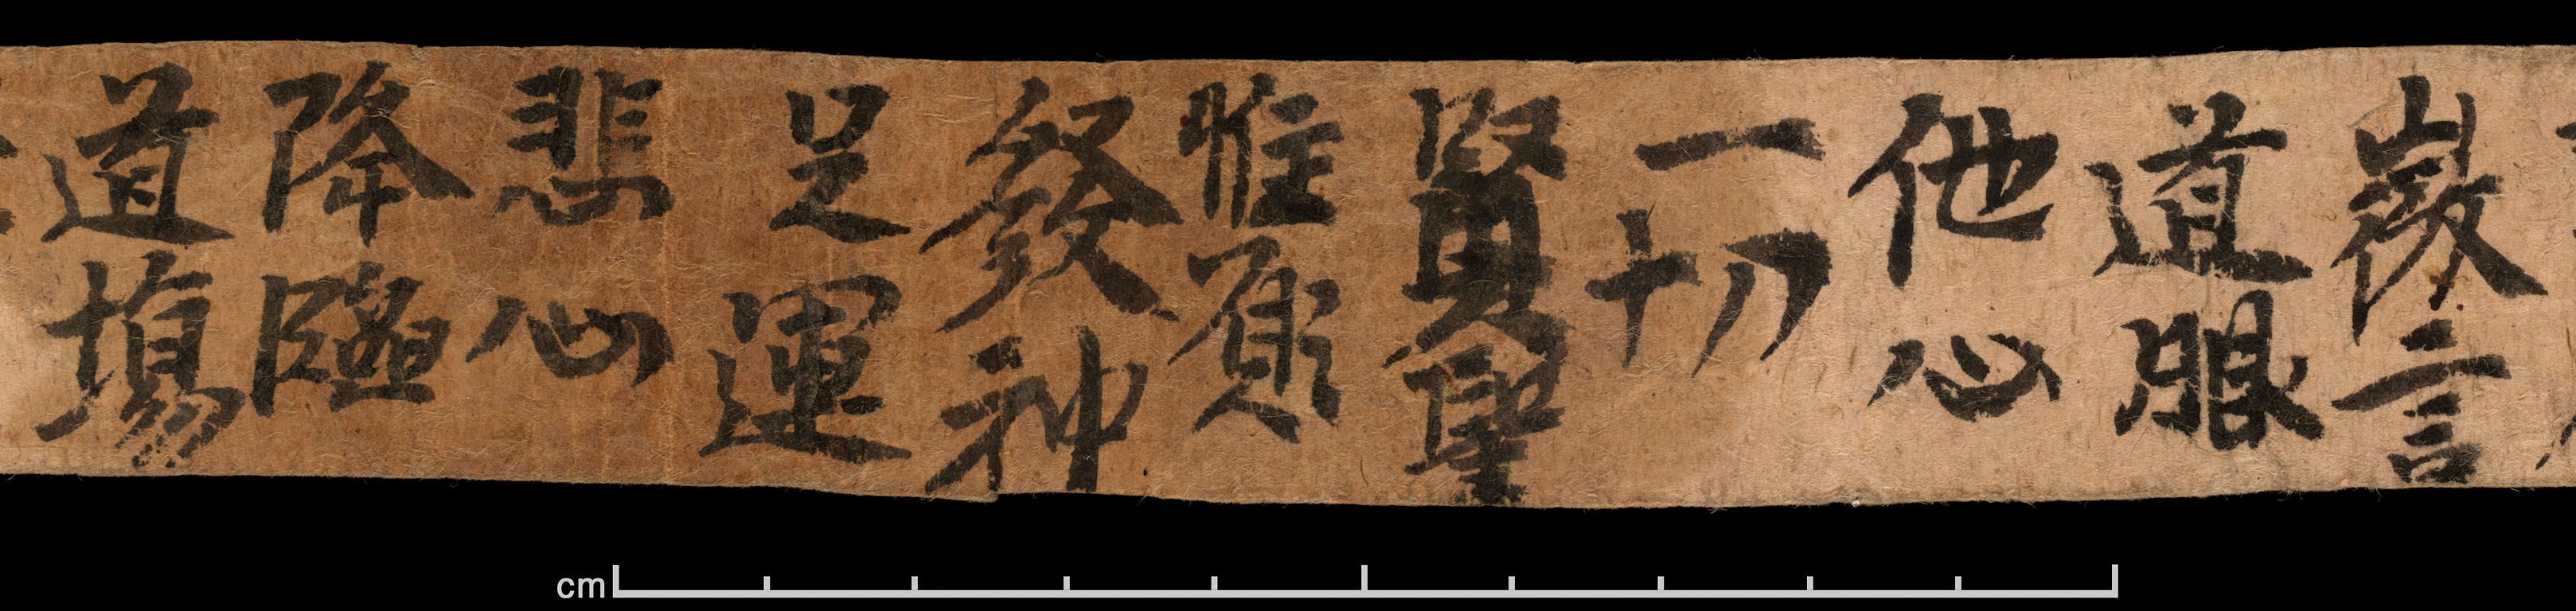 微言
道眼
他心
一切
賢聖
惟願
發神
足運
悲心
降臨
道場
cm